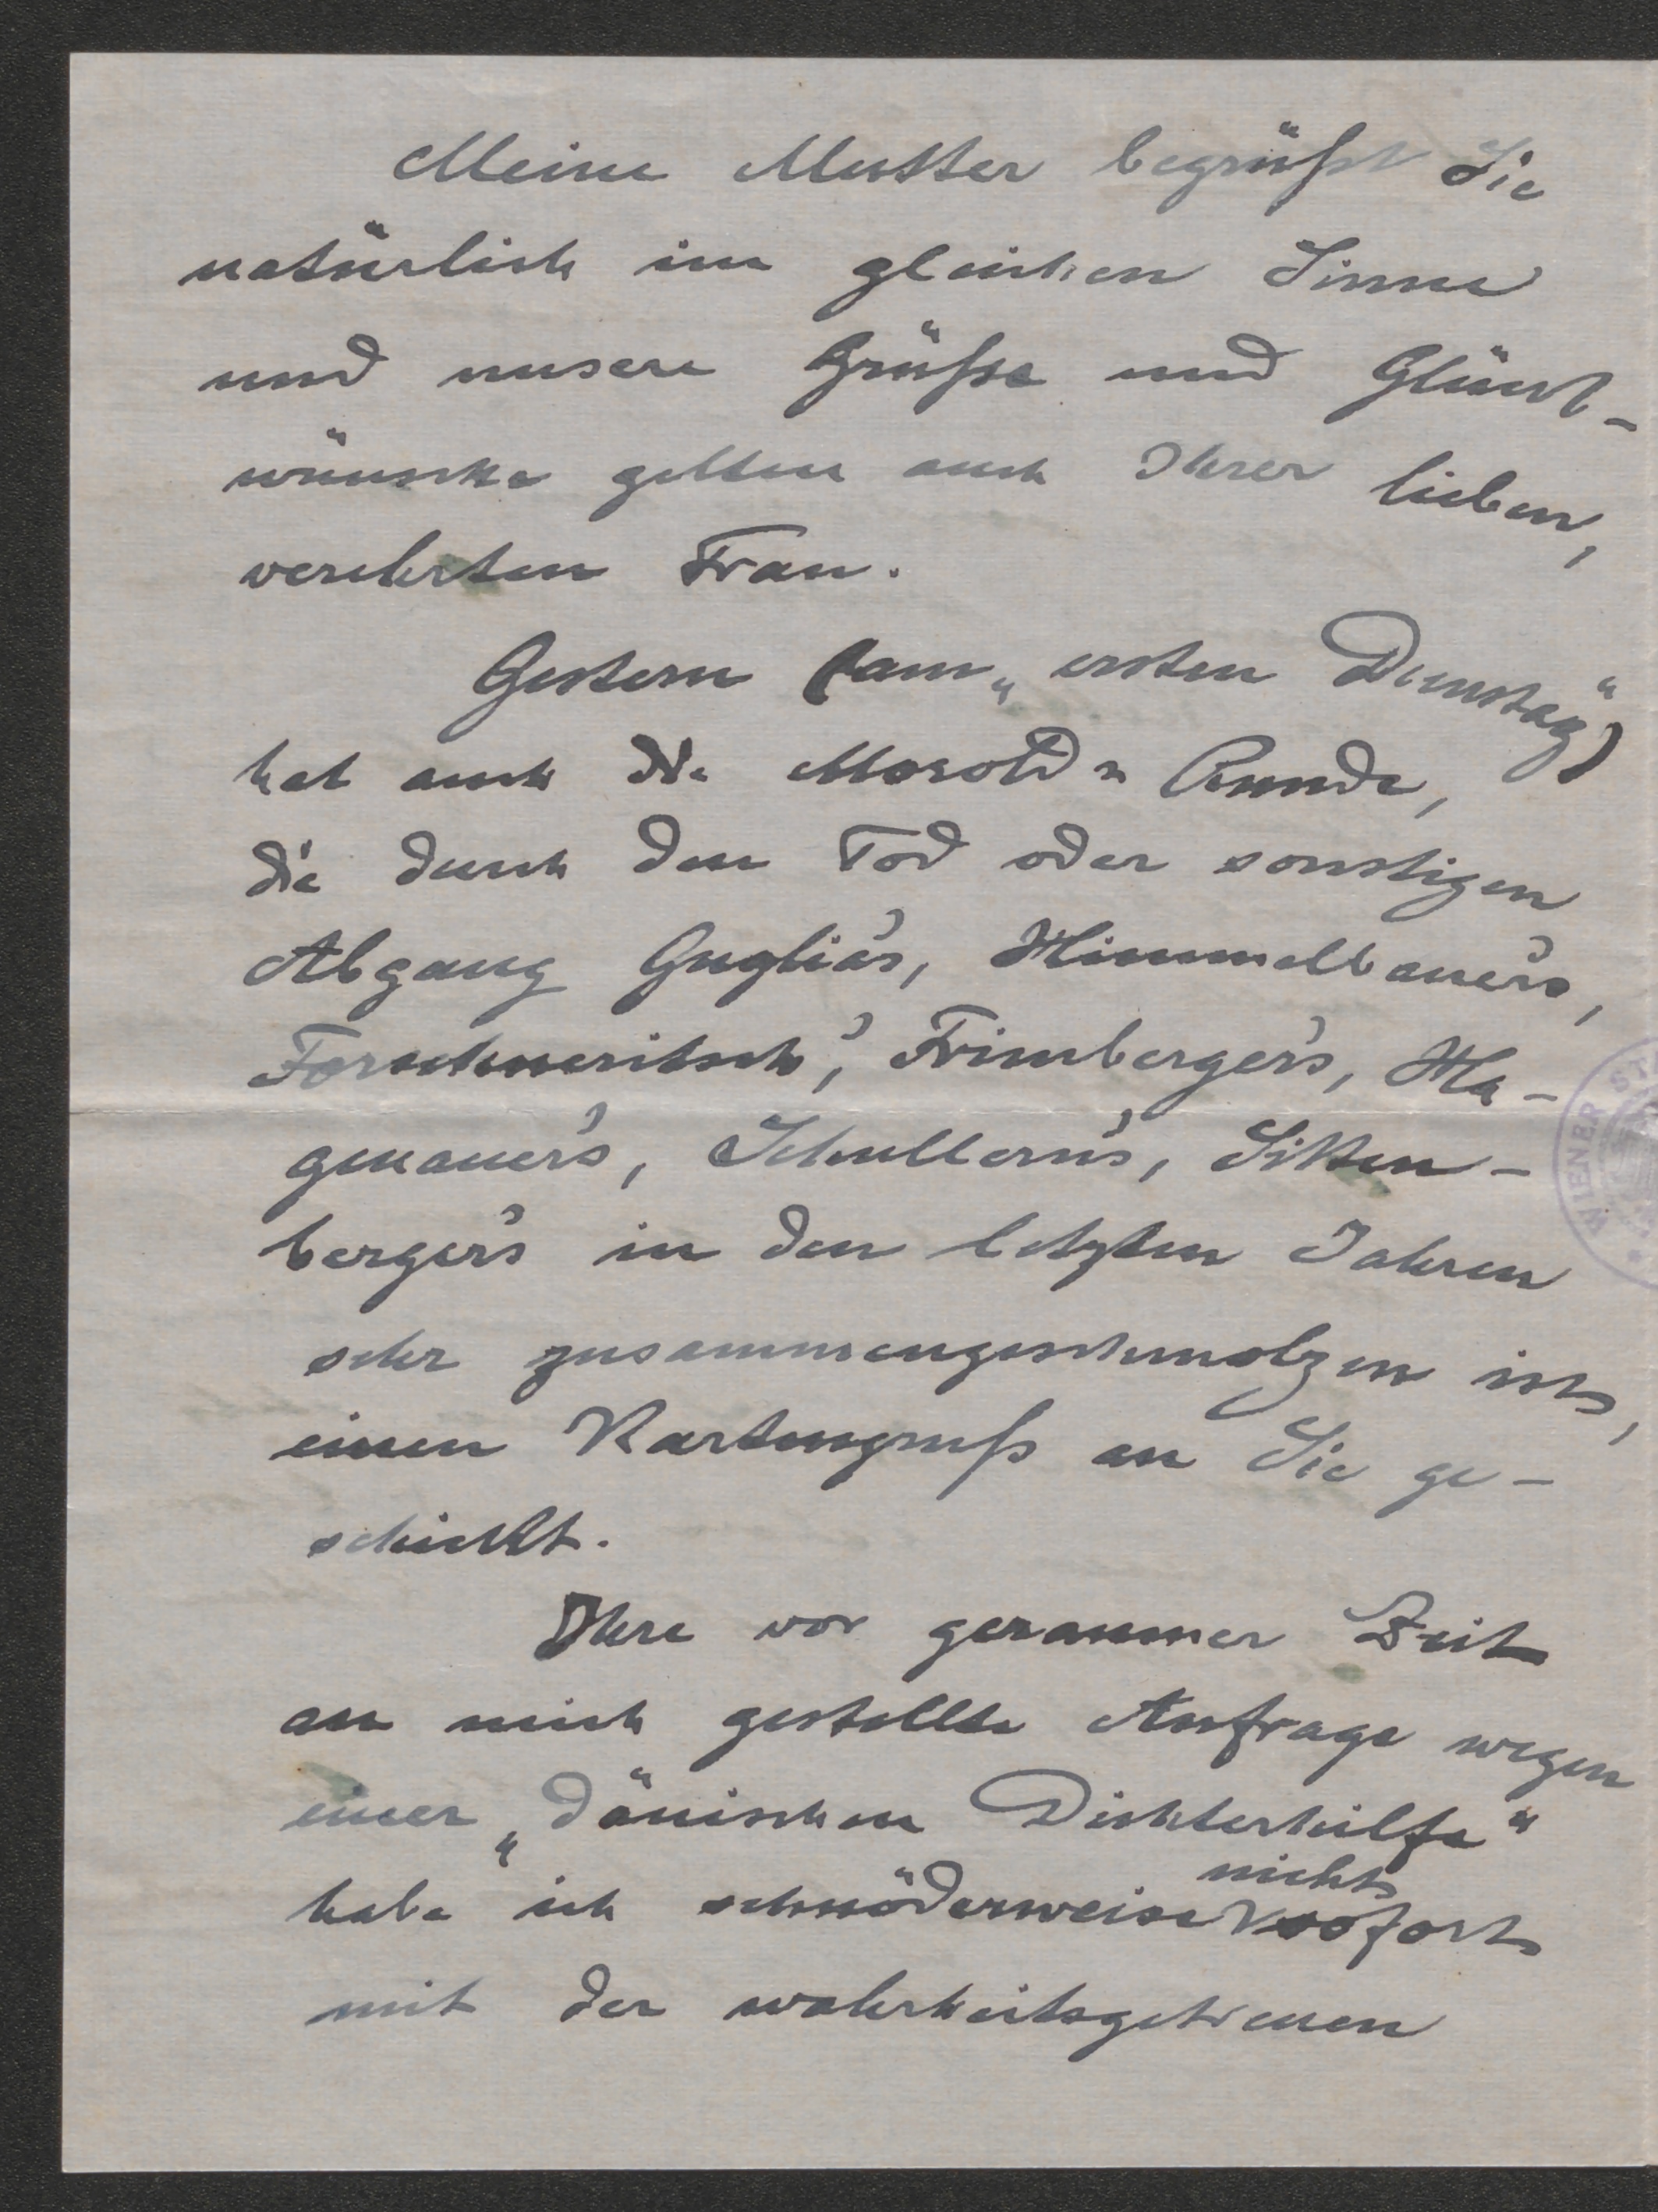 Meine Mutter begrüßt Sie
natürlich im gleichen Sinne
und unsere Grüße und Glück-
wünsche gelten auch Ihrer lieben,
verehrten Frau.
Gestern (am „ersten Dienstag“)
hat auch die Morold-Runde,
die durch den Tod oder sonstigen
Abgang Guglia's, Himmelbauer's,
Forschneritsch', Frimberger's, Ha-
genauer's, Schullern's, Sitten-
berger's in den letzten Jahren
sehr zusammengeschmolzen ist,
einen Kartengruß an Sie ge-
schickt.
Ihre vor geraumer Zeit
an mich gestellte Anfrage wegen
einer „dänischen Dichterhilfe“
nicht
habe ich schnöderweise sofort
mit der wahrheitsgetreuen
WIENER ST